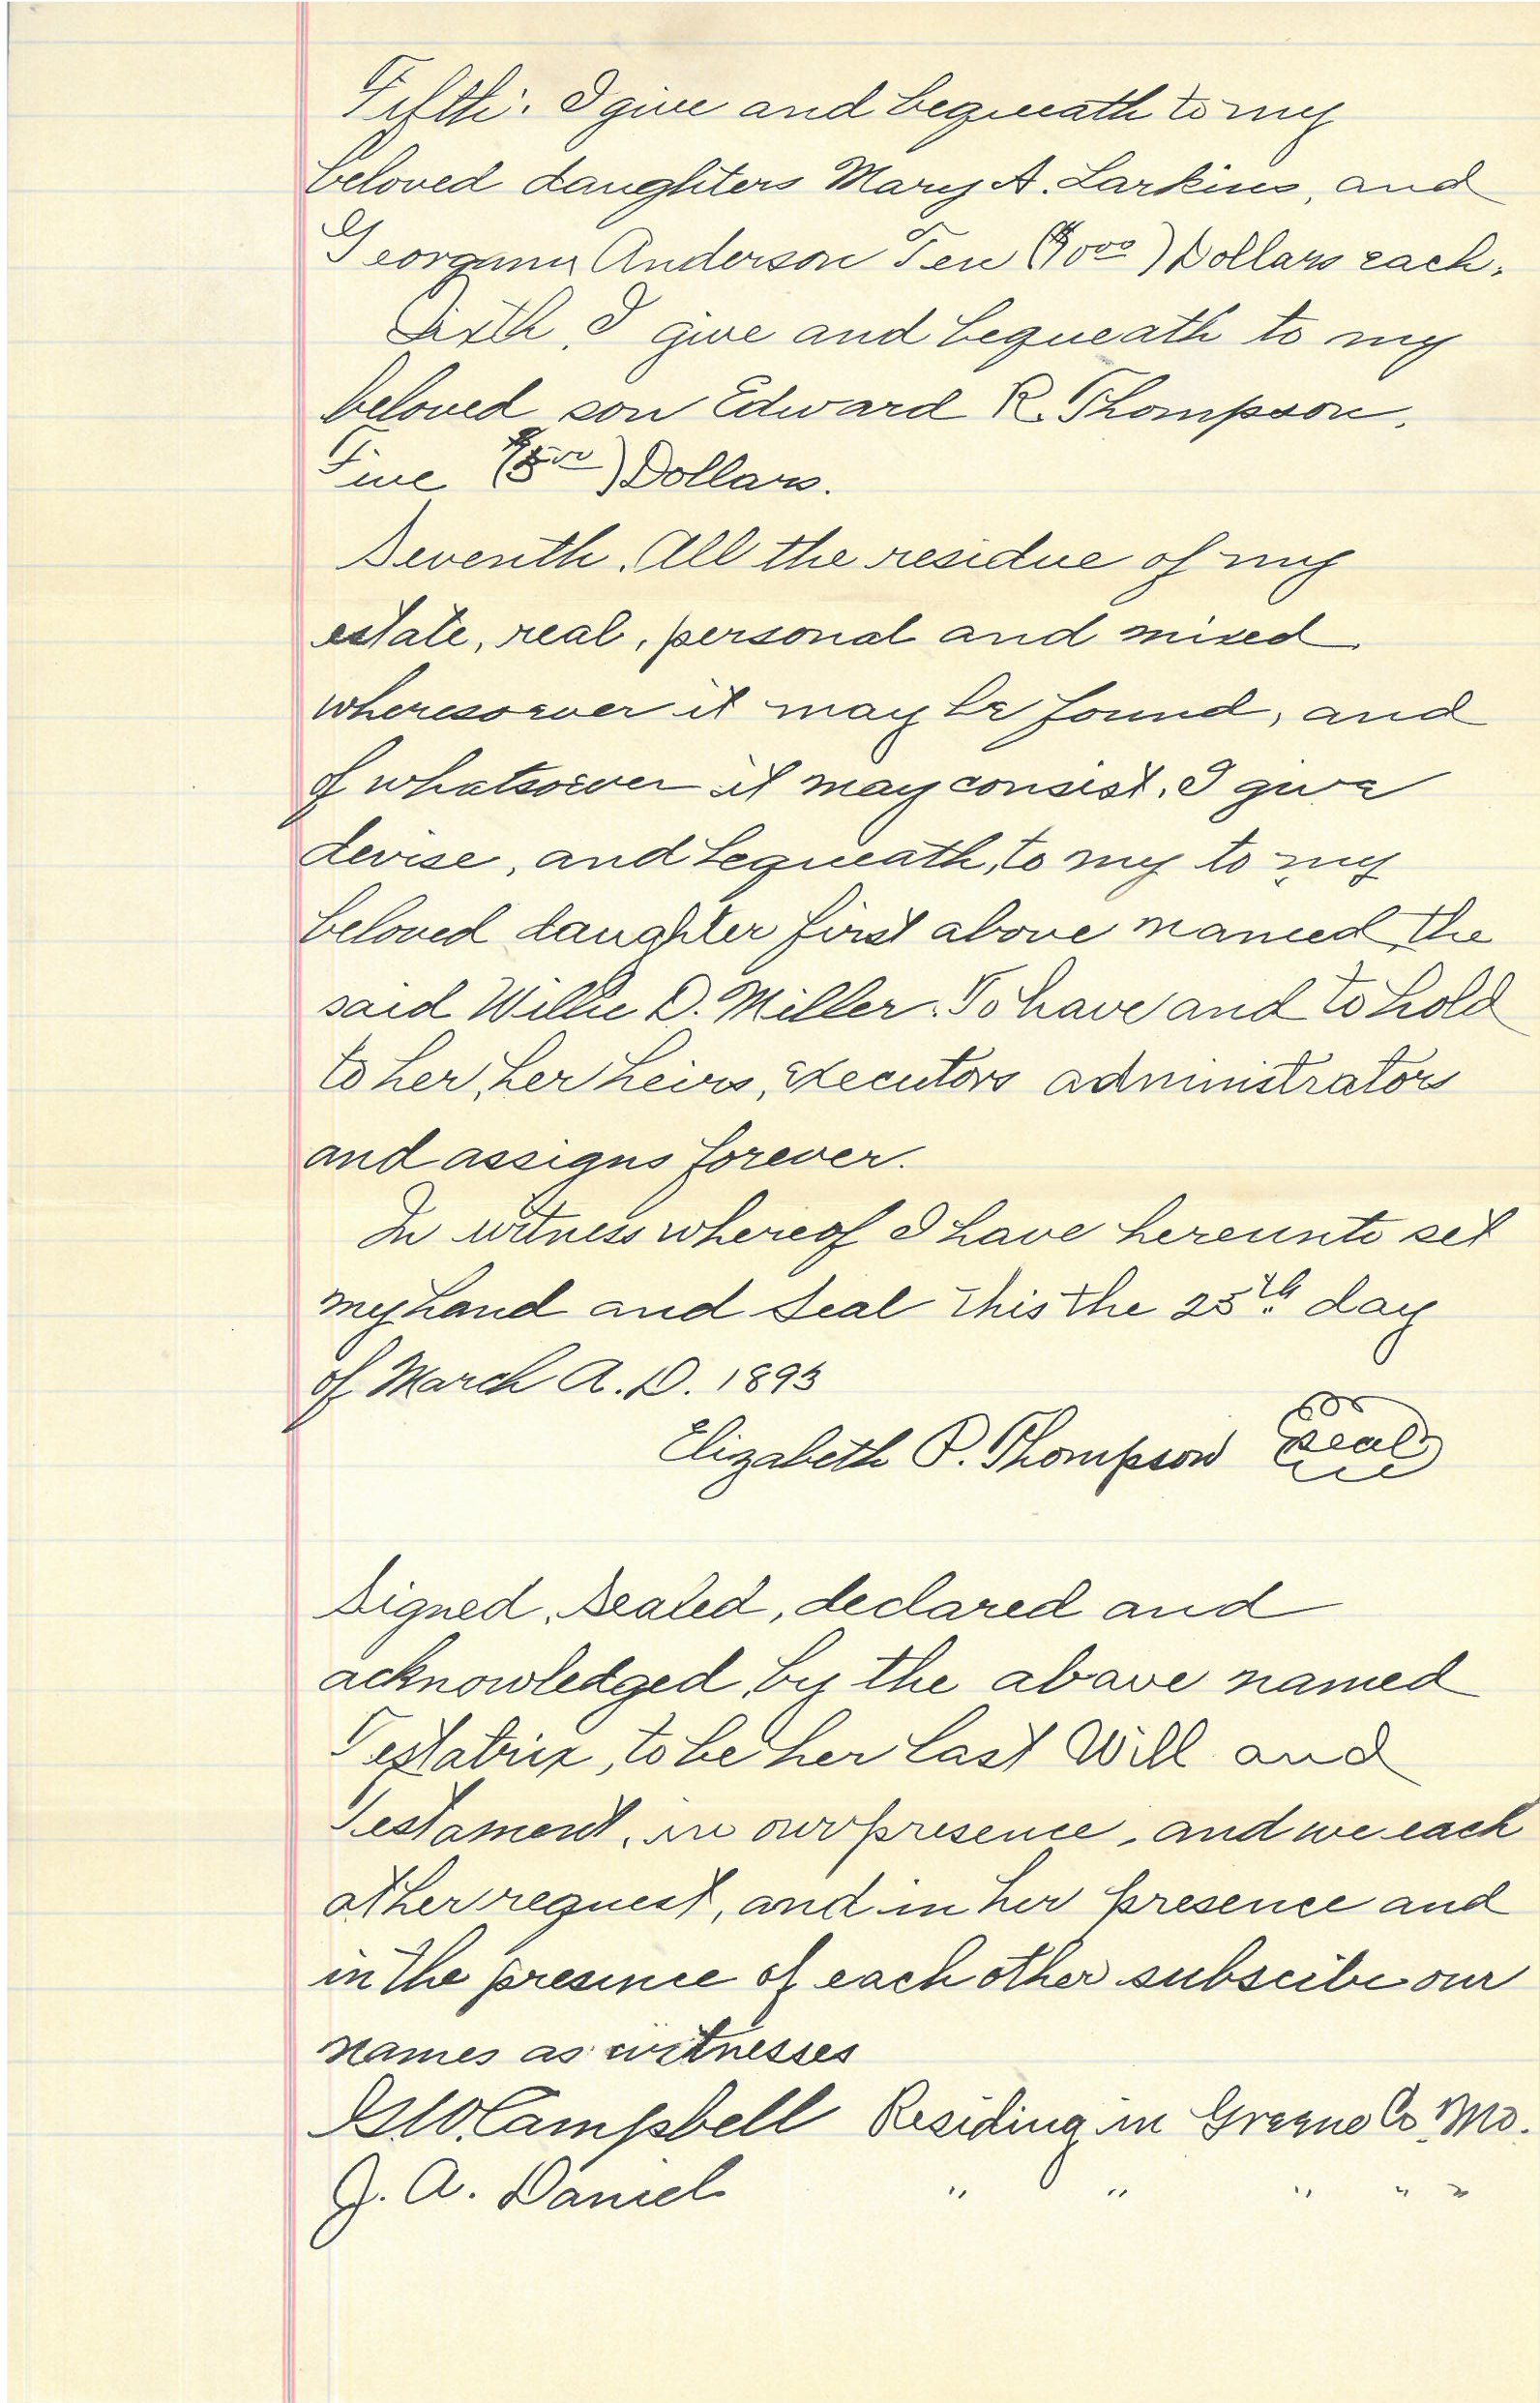 Fifth. I give and bequeath to my
beloved daughters Mary A. Larkins, and
Georgann Anderson Ten ($10 00) Dollars each.
Sixth. I give and bequeath to my
beloved son Edward R. Thompson.
Five ($5 00) Dollars.
Seventh. All the residue of my
estate, real, personal and mixed
wheresoever it may be found, and
of whatsoever it may consist. I give
devise, and bequeath, to my to my
beloved daughter first above named the
said Willie D. Miller. To have and to hold
to her, her heirs, executors administrators
and assigns forever.
In witness whereof I have hereunto set
my hand and seal this the 25th day
of March A.D. 1893
Elizabeth P. Thompson Seal
Signed, sealed, declared and
acknowledged by the above named
Testatrix, to be her last Will and
Testament, in our presence, and we each
at her request, and in her presence and
in the presence of each other subscibe our
names as witnesses
G.W. Campbell Residing in Greene Co Mo.
J. A. Daniel " " " " "